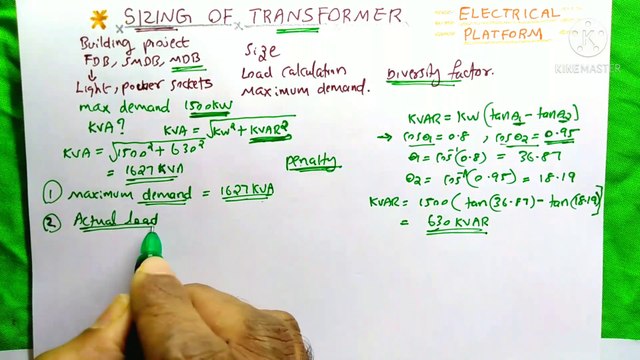 * SIZING OF TRANSFORMER
ELECTRICAL
PLATFORM
KINEMASTER
Building project
FDB, SMDB, MDB
↓
Light, power sockets
Size
Load calculation
Maximum demand.
Diversity factor.
max demand 1500KW
KVA? KVA = √KW² + KVAR²
KVA = √1500² + 630²
= 1627 KVA
penalty
① maximum demand = 1627 KVA
② Actual load
KVAR = KW (tanθ1 - tanθ2)
→ cosθ1 = 0.8 , cosθ2 = 0.95
θ1 = cos⁻¹(0.8) = 36.87
θ2 = cos⁻¹(0.95) = 18.19
KVAR = 1500 (tan(36.87) - tan(18.19)]
= 630 KVAR